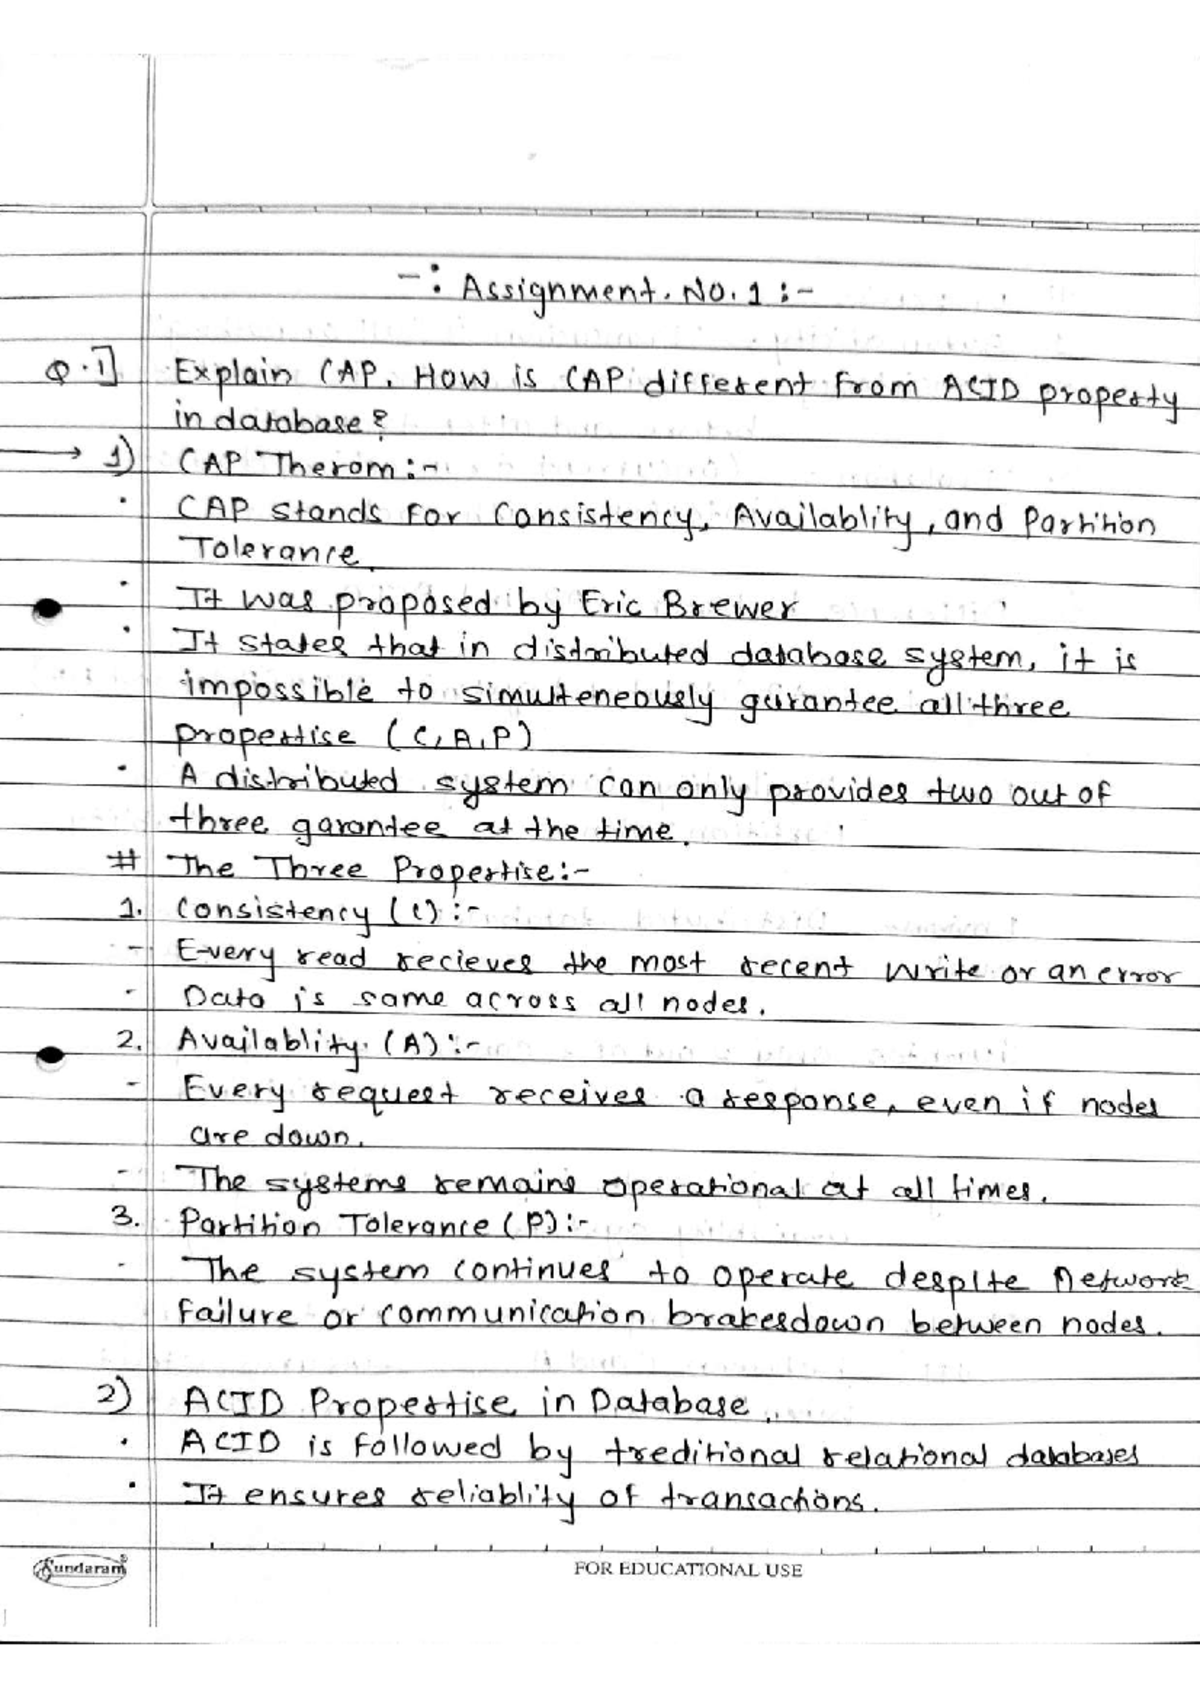 -: Assignment. No. 1 :-
Q.1] Explain CAP. How is CAP different from ACID property
in database?
→ 1) CAP Therom:-
· CAP stands for Consistency, Availablity, and Partition
Tolerance.
· It was proposed by Eric Brewer
· It states that in distributed database system, it is
impossible to simulteneously gurantee all three
propertise (C,A,P)
· A distributed system can only provides two out of
three garantee at the time.
# The Three Propertise:-
1. Consistency (C):-
- Every read recieves the most recent write or an error
- Data is same across all nodes.
2. Availablity. (A):-
- Every request receives a response, even if nodes
are down.
- The systems remains operational at all times.
3. Partition Tolerance (P):-
- The system continues to operate despite Network
failure or communication brakesdown between nodes.
2) ACID Propertise in Database.
· ACID is followed by treditional relational databases
· It ensures reliablity of transactions.
Sundaram
FOR EDUCATIONAL USE